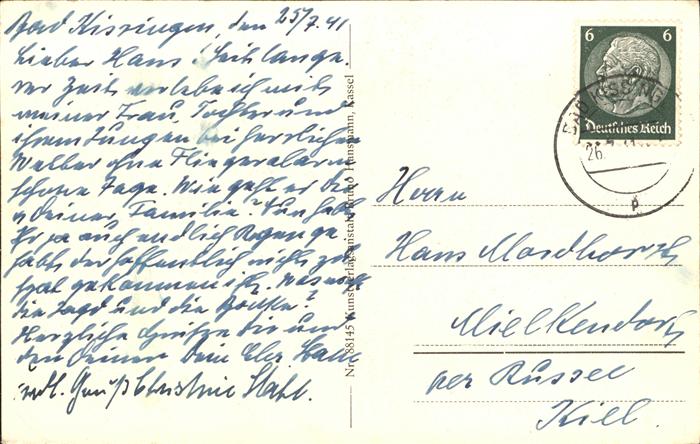 Bad Kissingen, den 25/7.41
Lieber Hans! Seit lange-
rer Zeit verlebe ich mit
meiner Frau, Tochter und
ihrem Jungen bei herrlichem
Wetter ohne Fliegeralarm
schöne Tage. Wie geht es Dir
u Deiner Familie? Nun habt
Ihr ja auch endlich Regen ge-
habt, der hoffentlich nicht zu
spät gekommen ist. Was macht
die Jagd und die Böcke?
Herzliche Grüße Dir und
den Deinen Dein
Gruß Christine
Nr. 88145 Kunstverlagsanstalt Bruno Hansmann, Kassel
6 6
Deutsches Reich
BAD KISSINGEN
26.
Herrn
Hans
Mielkendorf
per Russee
Kiel.